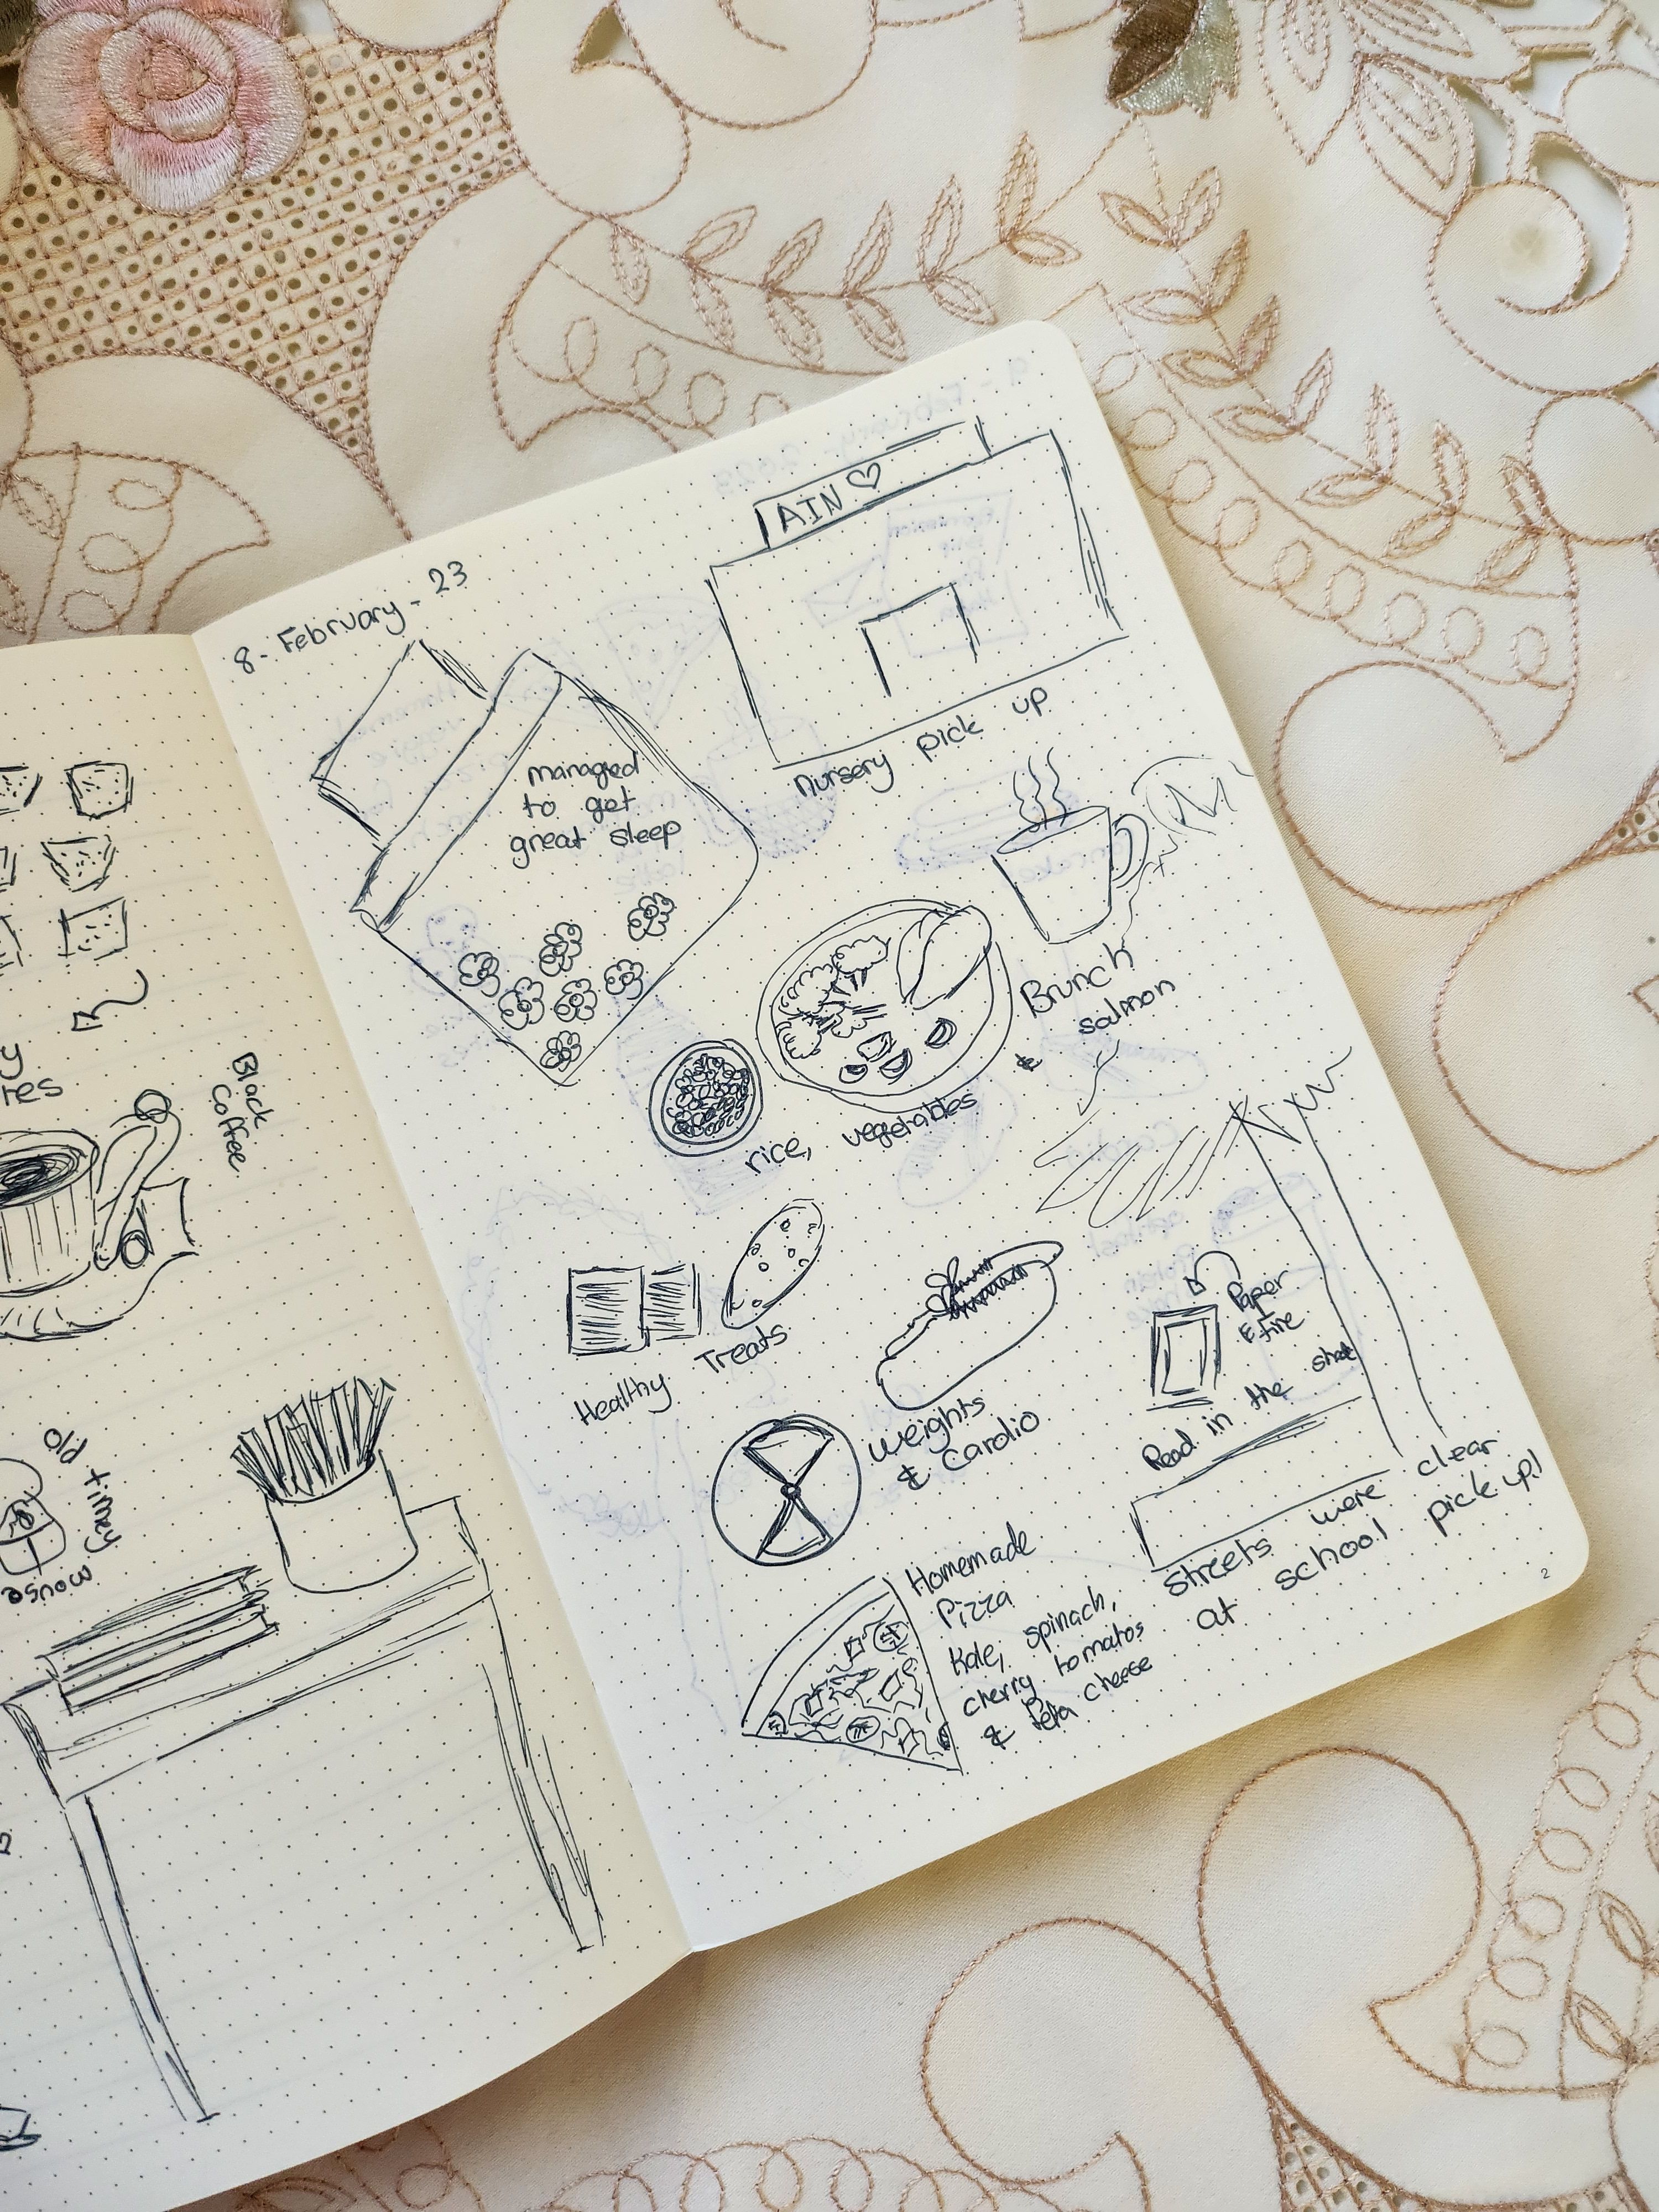 8 - February - 23
AIN
managed
to get
great sleep
nursery pick up
Brunch
salmon
&
rice, vegetables
Healthy Treats
weights
& Cardio
Paper
& fire
Read in the
Homemade
Pizza
Kale, spinach,
cherry tomatos
& feta cheese
streets were clear
at school pick up!
2
Black
Coffee
old timey
mouse